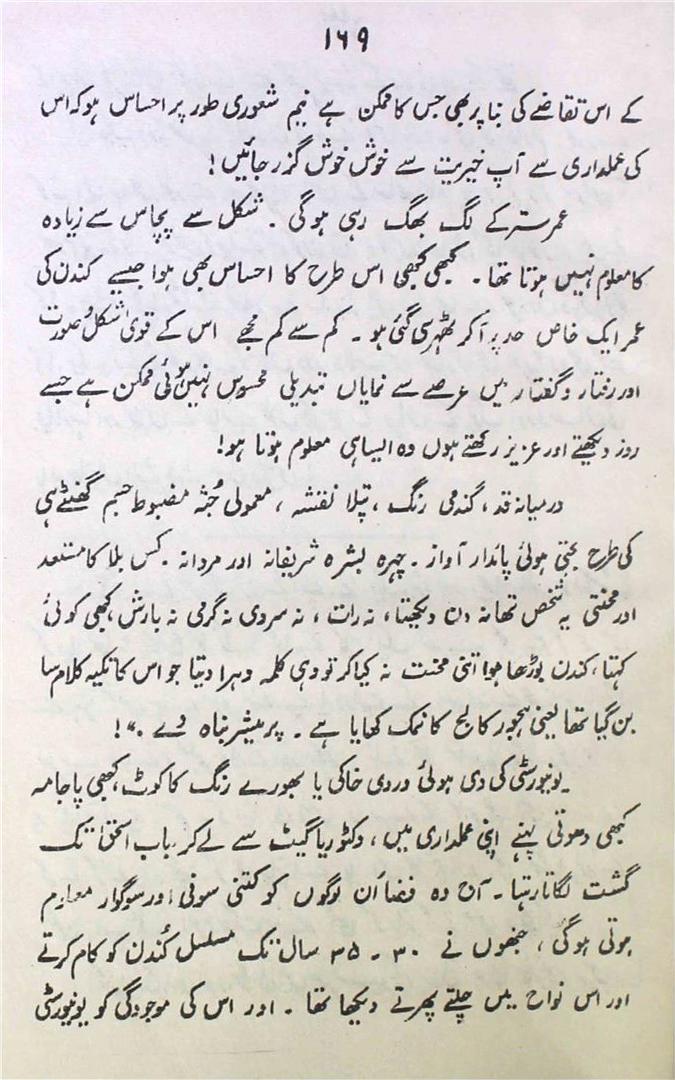 ۱۶۹
کے اس تقاضے کی بنا پر بھی جس کا ممکن ہے نیم شعوری طور پر احساس ہو کہ اس
کی عملداری سے آپ خیریت سے خوش خوش گزر جائیں!
عمر ستر کے لگ بھگ رہی ہوگی ۔ شکل سے پچاس سے زیادہ
کا معلوم نہیں ہوتا تھا ۔ کبھی کبھی اس طرح کا احساس بھی ہوا جیسے کندن کی
عمر ایک خاص حد پر آکر ٹھہر سی گئی ہو ۔ کم سے کم مجھے اس کے قویٰ شکل و صورت
اور رفتار و گفتار میں عرصے سے نمایاں تبدیلی محسوس نہیں ہوئی ممکن ہے جسے
روز دیکھتے اور عزیز رکھتے ہوں وہ ایسا ہی معلوم ہوتا ہو!
درمیانہ قد، گندمی رنگ، پتلا نقشہ، معمولی جُثہ مضبوط جسم گھنٹے ہی
کی طرح بجتی ہوئی پائدار آواز ۔ چہرہ بشرہ شریفانہ اور مردانہ ۔ کس بلا کا مستعد
اور محنتی یہ شخص تھا نہ دن دیکھتا، نہ رات، نہ سردی نہ گرمی نہ بارش، کبھی کوئی
کہتا، کندن بوڑھا ہوا اتنی محنت نہ کیا کر تو وہی کلمہ دہرا دیتا جو اس کا تکیہ کلام سا
بن گیا تھا یعنی ہجور کالج کا نمک کھایا ہے ۔ پرمیشر نباہ دے ۔"!
یونیورسٹی کی دی ہوئی وردی خاکی یا بھورے رنگ کا کوٹ، کبھی پاجامہ
کبھی دھوتی پہنے اپنی عملداری میں، وکٹوریا گیٹ سے لے کر باب اسحٰق تک
گشت لگاتا رہتا ۔ آج وہ فضا اُن لوگوں کو کتنی سونی اور سوگوار معلوم
ہوتی ہوگی، جنھوں نے ۳۰ ۔ ۳۵ سال تک مسلسل کُندن کو کام کرتے
اور اس نواح میں چلتے پھرتے دیکھا تھا ۔ اور اس کی موجودگی کو یونیورسٹی